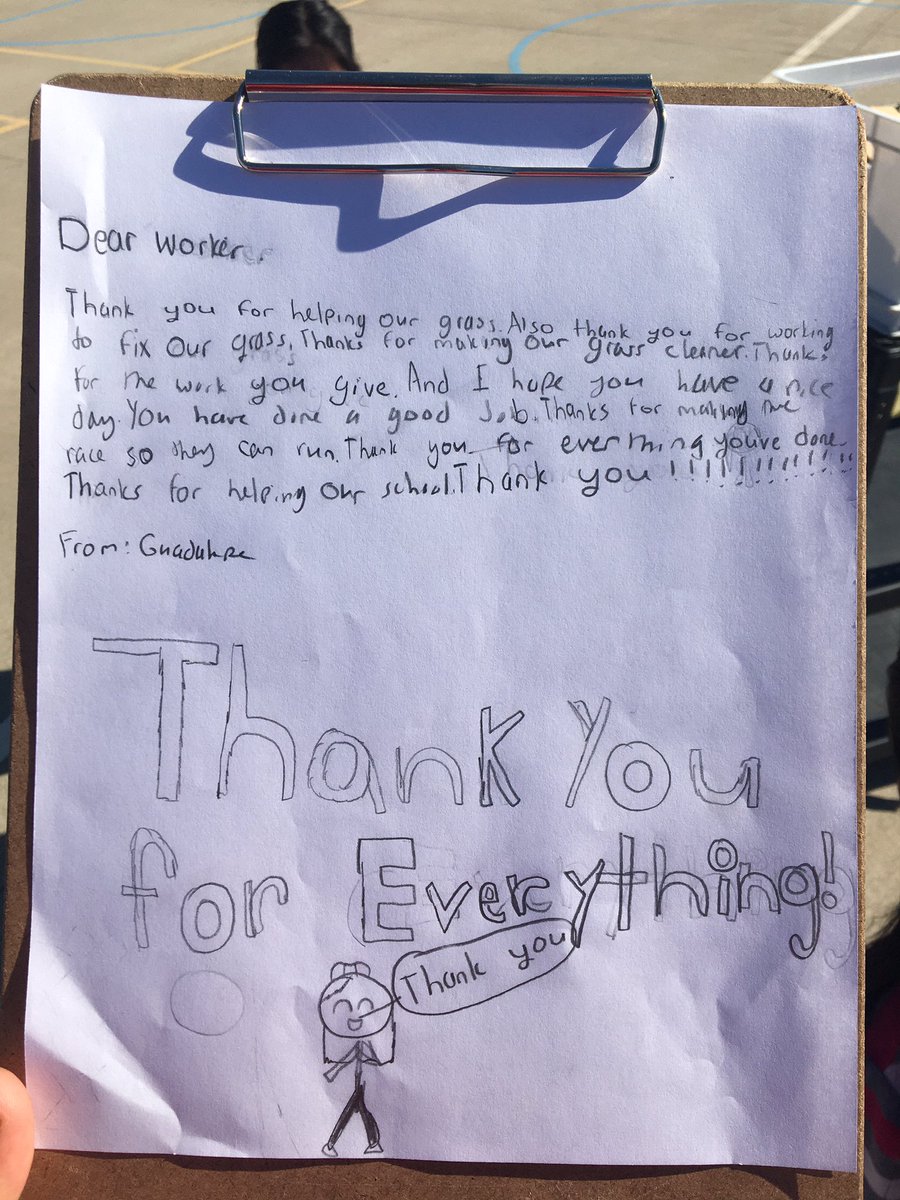 Dear Worker
Thank you for helping our grass. Also thank you for working
to fix our grass. Thanks for making our grass cleaner. Thanks
for the work you give. And I hope you have a nice
day. You have done a good Job. Thanks for making the
race so they can run. Thank you for everthing you've done
Thanks for helping our school. Thank you !!!!!!!!!!!!
From: Guadulupe
Thank You
for Everything!
Thank you